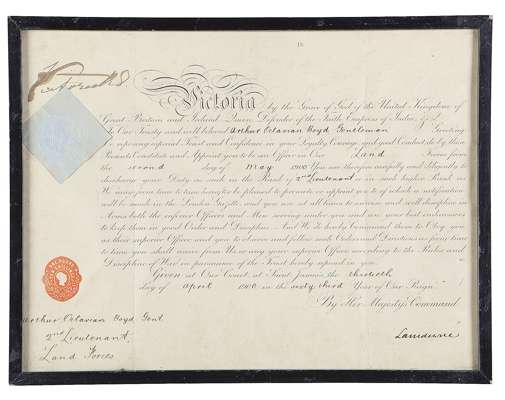 Victoria by the Grace of God of the United Kingdom of
Great Britain and Ireland Queen, Defender of the Faith, Empress of India, &c
To Our Trusty and well beloved Arthur Octavian Boyd Gentleman Greeting
We reposing especial Trust and Confidence in your Loyalty, Courage, and good Conduct do by these
Presents Constitute and Appoint you to be an Officer in Our Land Forces from
the second day of May 1900 You are therefore carefully and diligently to
discharge your Duty as such in the Rank of 2nd Lieutenant or in such higher Rank as
We may from time to time hereafter be pleased to promote or appoint you to of which a notification
will be made in the London Gazette, and you are at all times to exercise and well discipline in
Arms both the inferior Officers and Men serving under you and use your best endeavours
to keep them in good Order and Discipline. And We do hereby Command them to Obey you
as their superior Officer and you to observe and follow such Orders and Directions as from time
to time you shall receive from Us or any your superior Officer according to the Rules and
Discipline of War in pursuance of the Trust hereby reposed in you.
Given at Our Court, at Saint James's, the thirtieth
day of April 1900 in the sixty third Year of Our Reign
By Her Majesty's Command
Arthur Octavian Boyd Gent
2nd Lieutenant
Land Forces
Lansdowne